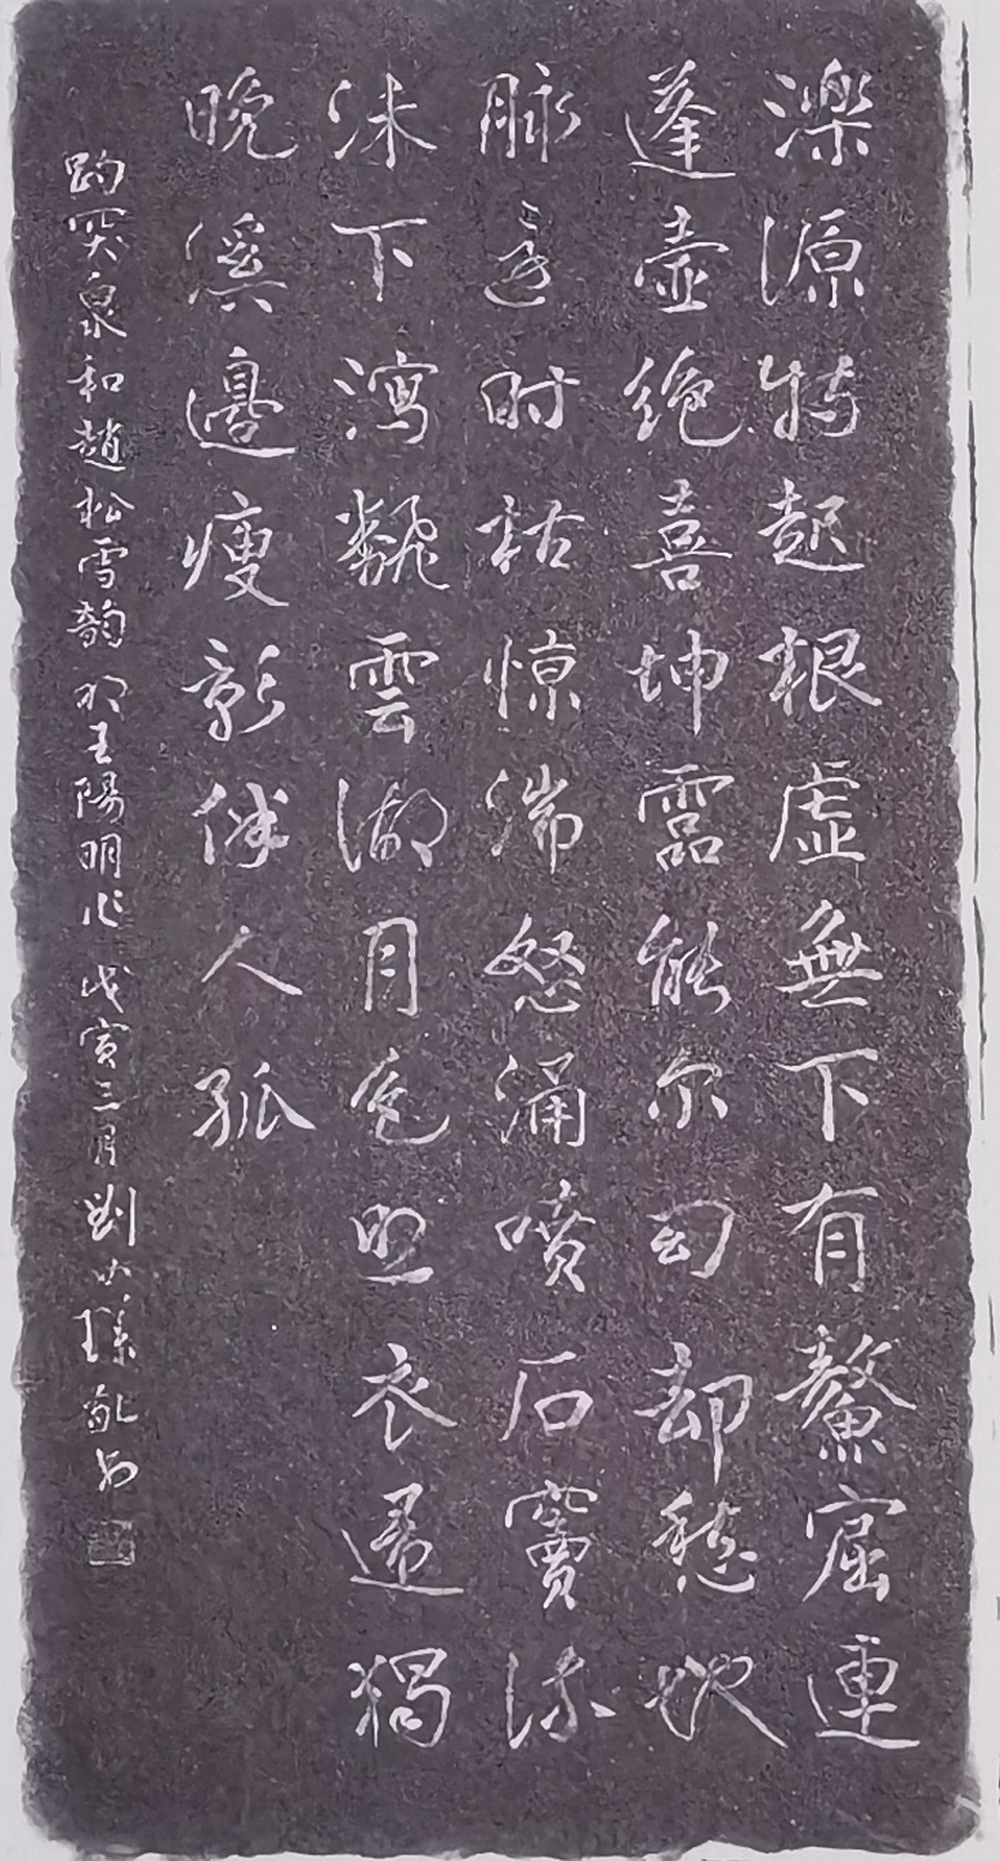 濼源特起根虛無下有鰲窟連
蓬壺絶喜坤靈能尔幻却愁地
脉還时枯惊湍怒涌噴石竇流
沫下瀉飜雲湖月色照衣歸獨
晚溪邊瘦影伴人孤
趵突泉和趙松雪韵 明王陽明作 戊寅三月 劉小 敬书